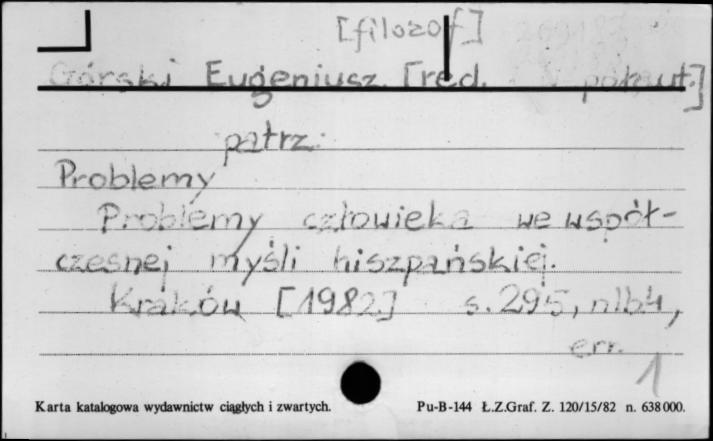 [filozof]
Górski Eugeniusz. [red. i współaut.]
patrz:
Problemy
Problemy człowieka we współ-
czesnej myśli hiszpańskiej.
Kraków [1982] s. 295, nlb4,
err.
1
Karta katalogowa wydawnictw ciągłych i zwartych. Pu-B-144 Ł.Z.Graf. Z. 120/15/82 n. 638000.